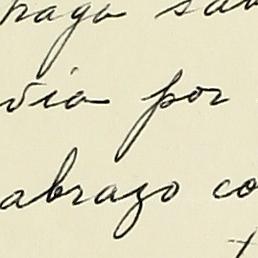 haga sa
via por
abrazo co